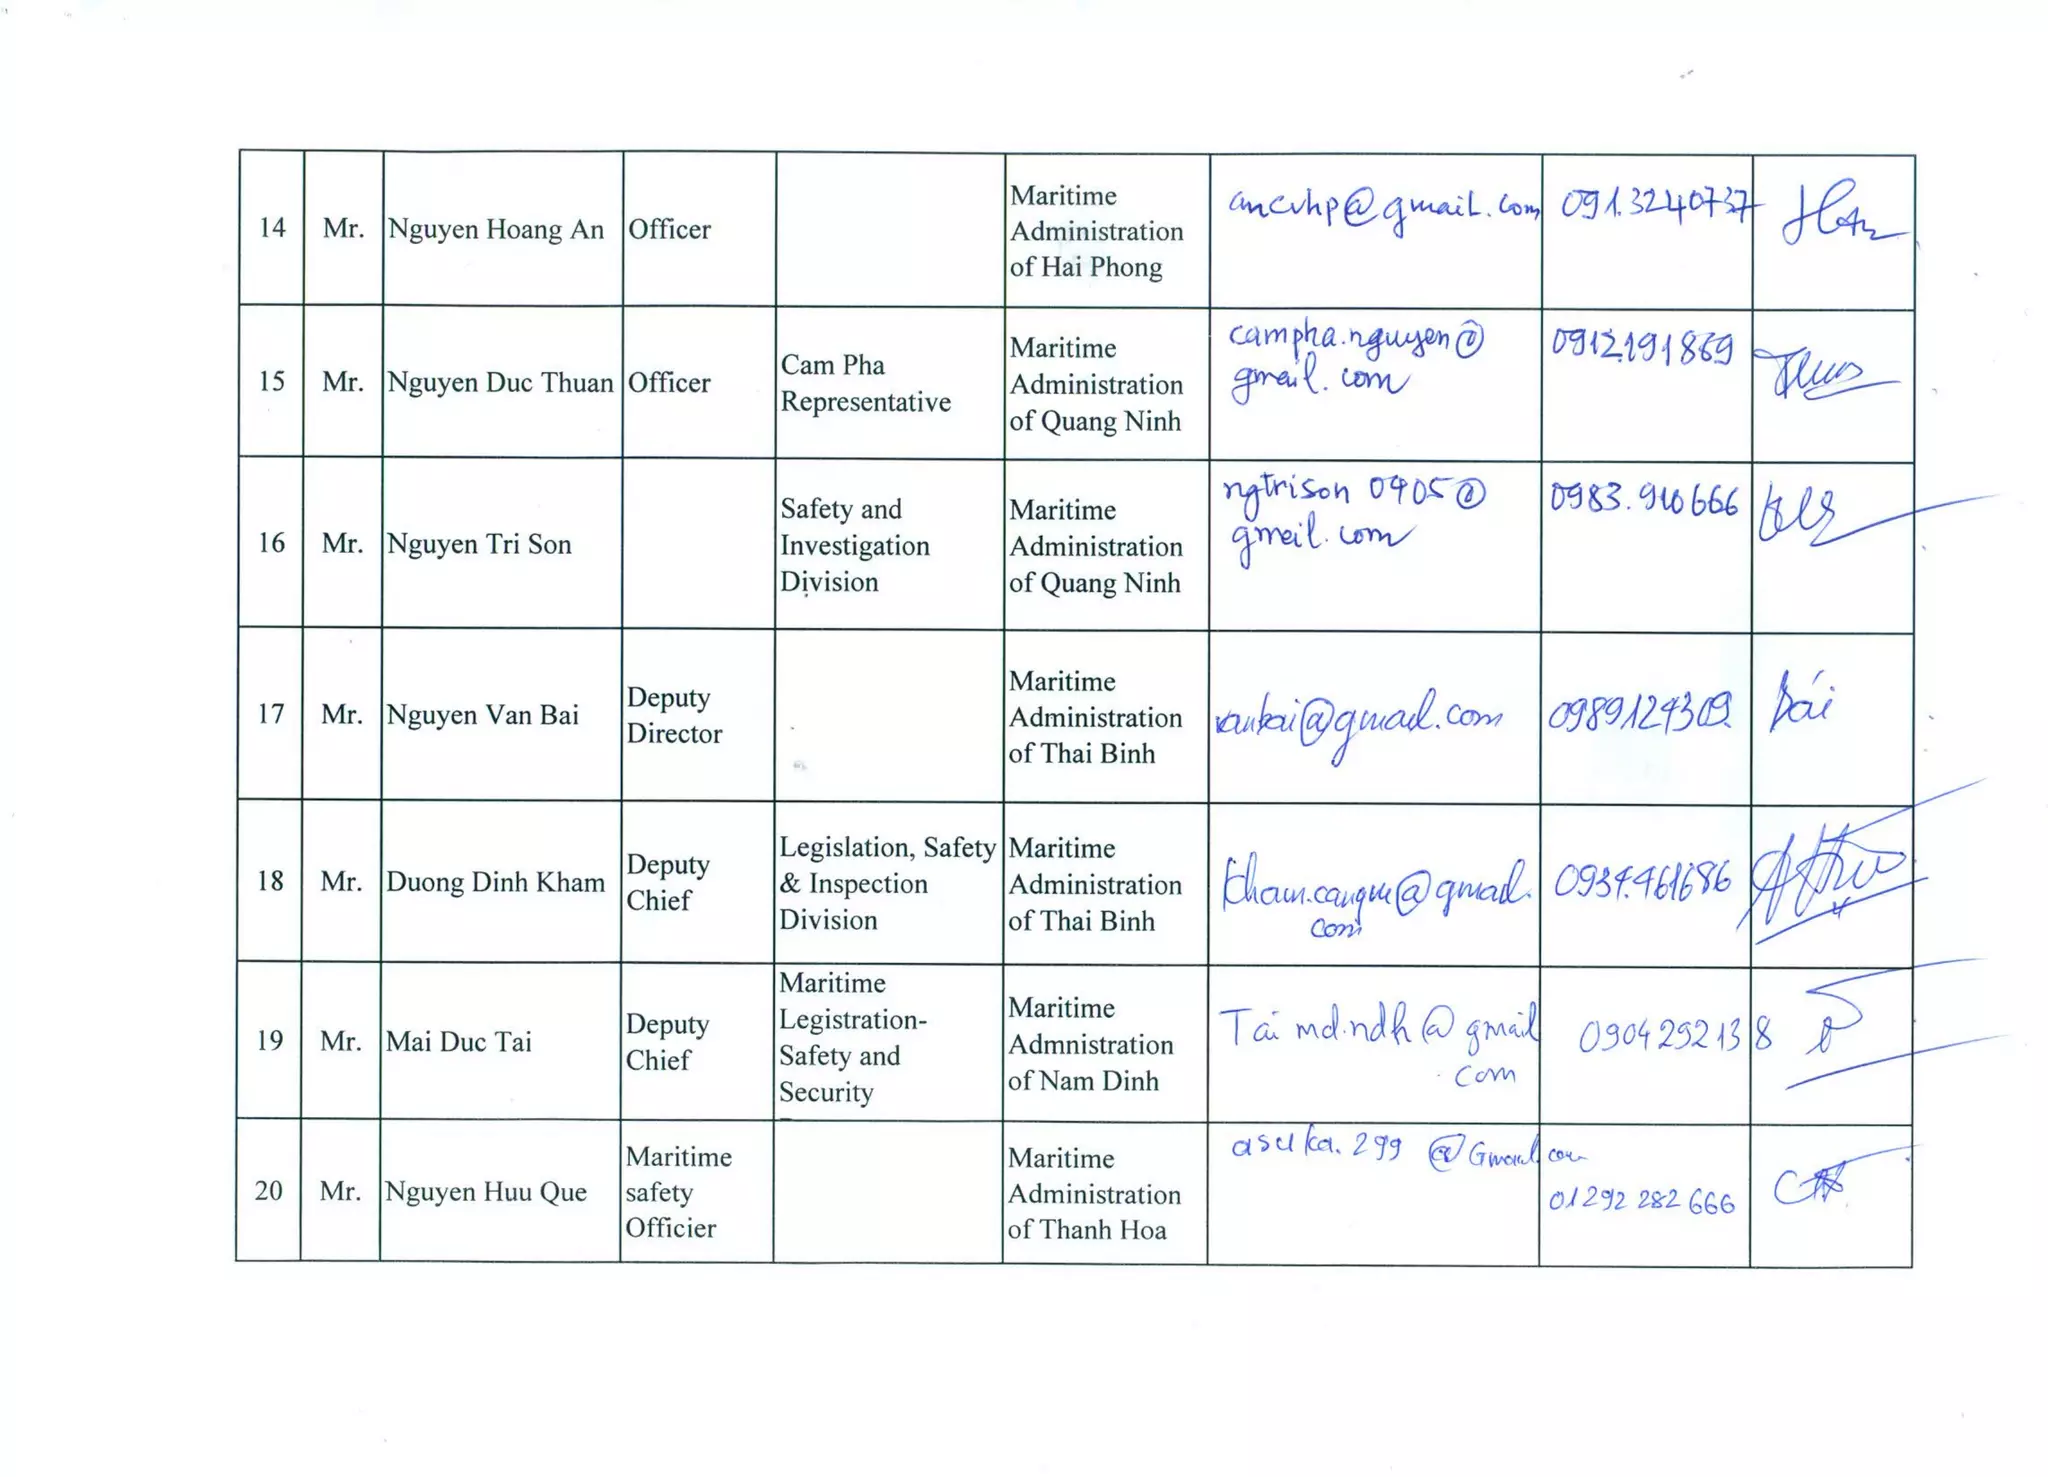 14 Mr. Nguyen Hoang An Officer
Maritime
Administration
of Hai Phong
ancvhp@gmail.com 091.3240737
15 Mr. Nguyen Duc Thuan Officer
Cam Pha
Representative
Maritime
Administration
of Quang Ninh
campha.nguyen@
gmail.com
0912191869
16 Mr. Nguyen Tri Son
Safety and
Investigation
Division
Maritime
Administration
of Quang Ninh
ngtrison 0405@
gmeil.com
0983.910666
17 Mr. Nguyen Van Bai
Deputy
Director
Maritime
Administration
of Thai Binh
vanbai@gmail.com 0989124309.
Bái
18 Mr. Duong Dinh Kham
Deputy
Chief
Legislation, Safety
& Inspection
Division
Maritime
Administration
of Thai Binh
@gmail.
com
0934.461686
19 Mr. Mai Duc Tai
Deputy
Chief
Maritime
Legistration-
Safety and
Security
Maritime
Admnistration
of Nam Dinh
Tai md.ndh@gmail
.com
0904292138
20 Mr. Nguyen Huu Que
Maritime
safety
Officier
Maritime
Administration
of Thanh Hoa
asuka.299 @Gmail com
01292 282 666